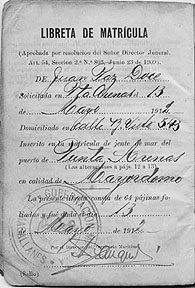 LIBRETA DE MATRÍCULA
(Aprobada por resolucion del Señor Director Jeneral.
Art. 54, Seccion 2.ª N.º 803, Junio 25 de 1909).
DE Juan Paz Doce
Solicitada en Pta. Arenas a 13
de Mayo 1912
Domiciliado en calle 545
Inscrito en la matrícula de jente de mar del
puerto de Punta Arenas
(Las alteraciones a páj. 12 a 13).
en calidad de Mayordomo
La presente libreta consta de 64 pájinas fo-
liadas i fué dada el dia 13
de Mayo 1912
(Sello)